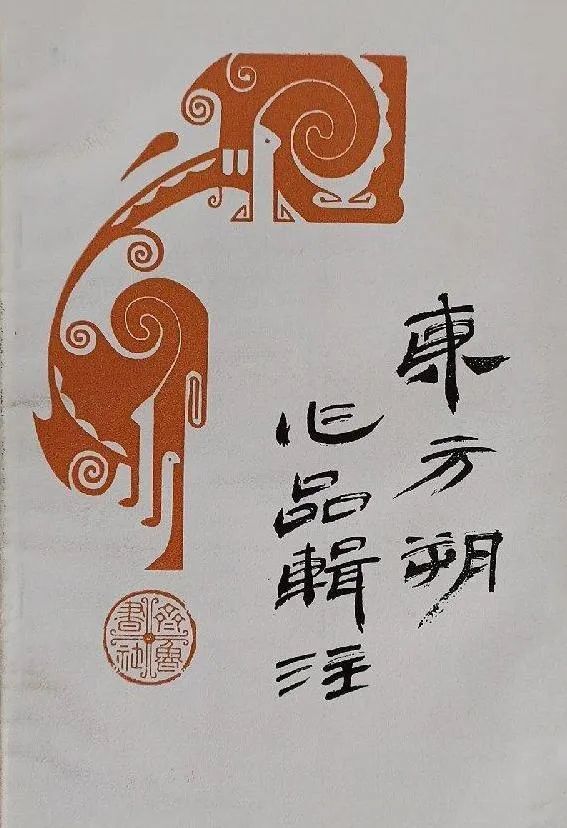 東方朔
作品輯注
齊魯書社